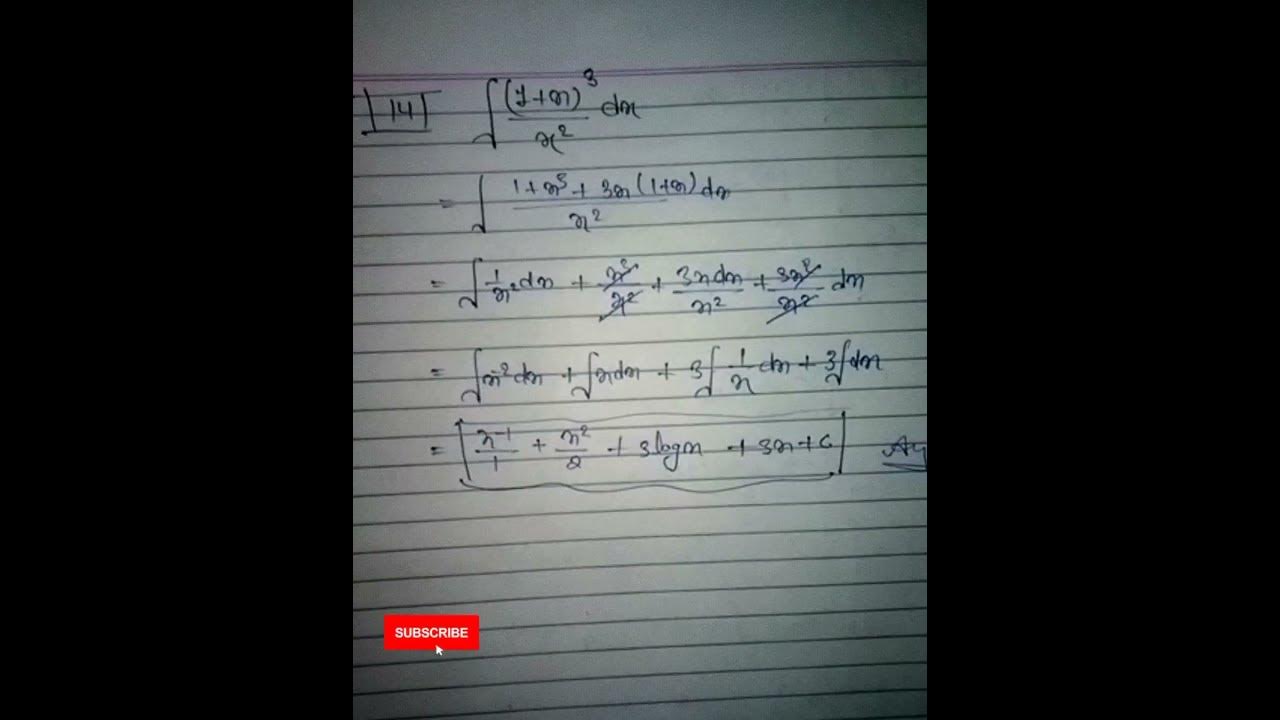 14 ∫ (1+x)³/x² dx
= ∫ 1+x³+3x(1+x)dx/x²
= ∫ 1/x² dx + x³/x² + 3xdx/x² + 3x²/x² dx
= ∫x⁻²dx + ∫xdx + 3∫ 1/x dx + 3∫dx
= [x⁻¹/1 + x²/2 + 3logx + 3x + C]
SUBSCRIBE